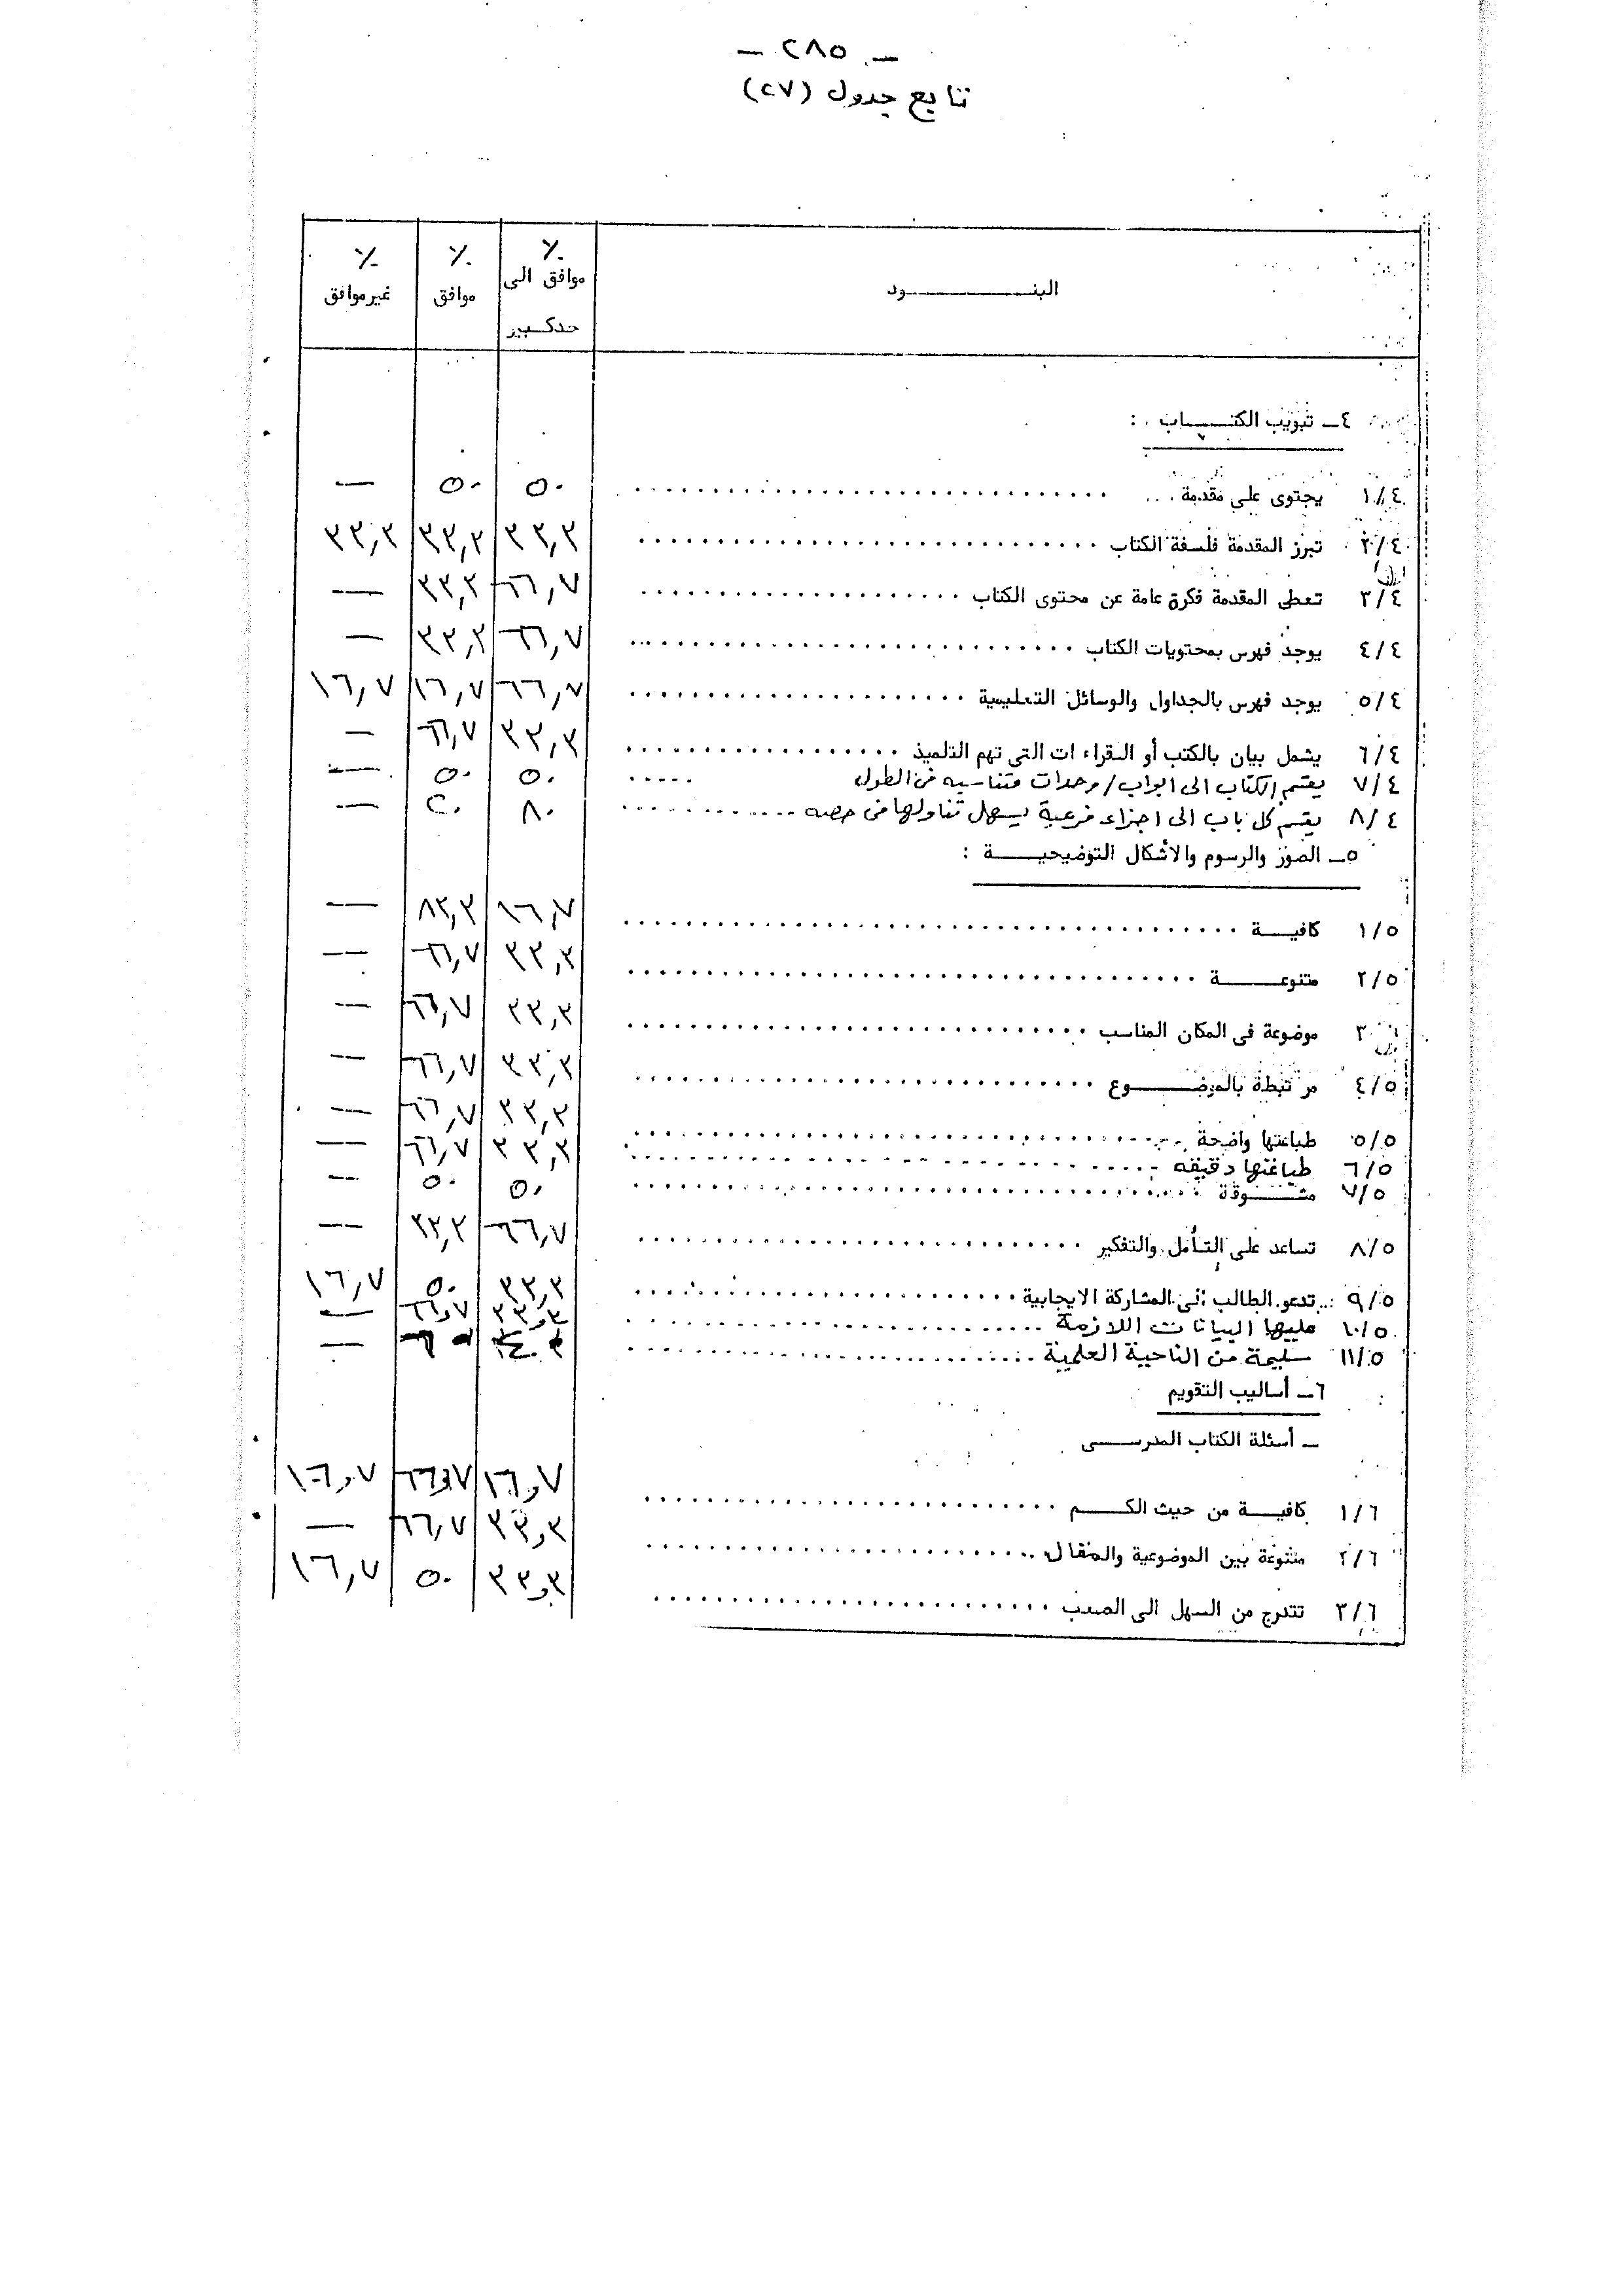 - ٢٨٥ -
تابع جدول (٢٧)
البنــــــــود
٪ موافق الى حد كبير
٪ موافق
٪ غير موافق
٤ـ تبويب الكتـــاب :
١/٤ يحتوى على مقدمة ٥٠ ٥٠ —
٢/٤ تبرز المقدمة فلسفة الكتاب ٣٣,٣ ٣٣,٣ ٣٣,٣
٣/٤ تعطى المقدمة فكرة عامة عن محتوى الكتاب ٦٦,٧ ٣٣,٣ —
٤/٤ يوجد فهرس بمحتويات الكتاب ٦٦,٧ ٣٣,٣ —
٥/٤ يوجد فهرس بالجداول والوسائل التعليمية ٦٦,٧ ١٦,٧ ١٦,٧
٦/٤ يشمل بيان بالكتب أو القراء ات التى تهم التلميذ ٣٣,٣ ٦٦,٧ —
٧/٤ يقسم الكتاب الى ابواب/وحدات متناسبه فى الطول ٥٠ ٥٠ —
٨/٤ يقسم كل باب الى اجزاء فرعية يسهل تناولها فى حصه ٨٠ ٢٠ —
٥ـ الصور والرسوم والأشكال التوضيحيـــة :
١/٥ كافيــة ١٦,٧ ٨٣,٣ —
٢/٥ متنوعــــة ٣٣,٣ ٦٦,٧ —
٣ موضوعة فى المكان المناسب ٣٣,٣ ٦٦,٧ —
٤/٥ مرتبطة بالموضــــوع ٣٣,٣ ٦٦,٧ —
٥/٥ طباعتها واضحة ٣٣,٣ ٦٦,٧ —
٦/٥ طباعتها دقيقه ٣٣,٣ ٦٦,٧ —
٧/٥ مشـــوقة ٥٠ ٥٠ —
٨/٥ تساعد على التأمل والتفكير ٦٦,٧ ٣٣,٣ —
٩/٥ تدعو الطالب الى المشاركة الايجابية ٣٣,٣ ٥٠ ١٦,٧
١٠/٥ عليها البيانات اللازمة ٣٣,٣ ٦٦,٧ —
١١/٥ سليمة من الناحية العلمية —
٦ـ أساليب التقويم
ـ أسئلة الكتاب المدرســـى
١/٦ كافيــة من حيث الكـــم ١٦,٧ ٦٦,٧ ١٦,٧
٢/٦ متنوعة بين الموضوعية والمقال ٣٣,٣ ٦٦,٧ —
٣/٦ تتدرج من السهل الى الصعب ٣٣,٣ ٥٠ ١٦,٧